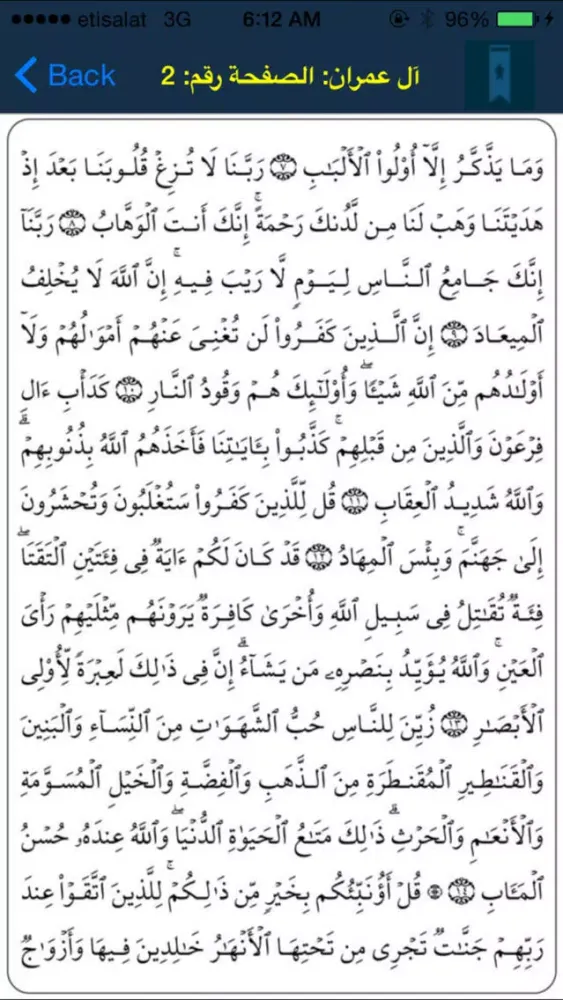 etisalat 3G 6:12 AM 96%
Back آل عمران: الصفحة رقم: 2
وَمَا يَذَّكَّرُ إِلَّآ أُوْلُواْ ٱلۡأَلۡبَٰبِ ٧ رَبَّنَا لَا تُزِغۡ قُلُوبَنَا بَعۡدَ إِذۡ
هَدَيۡتَنَا وَهَبۡ لَنَا مِن لَّدُنكَ رَحۡمَةًۚ إِنَّكَ أَنتَ ٱلۡوَهَّابُ ٨ رَبَّنَآ
إِنَّكَ جَامِعُ ٱلنَّاسِ لِيَوۡمٖ لَّا رَيۡبَ فِيهِۚ إِنَّ ٱللَّهَ لَا يُخۡلِفُ
ٱلۡمِيعَادَ ٩ إِنَّ ٱلَّذِينَ كَفَرُواْ لَن تُغۡنِيَ عَنۡهُمۡ أَمۡوَٰلُهُمۡ وَلَآ
أَوۡلَٰدُهُم مِّنَ ٱللَّهِ شَيۡـٔٗاۖ وَأُوْلَٰٓئِكَ هُمۡ وَقُودُ ٱلنَّارِ ١٠ كَدَأۡبِ ءَالِ
فِرۡعَوۡنَ وَٱلَّذِينَ مِن قَبۡلِهِمۡۚ كَذَّبُواْ بِـَٔايَٰتِنَا فَأَخَذَهُمُ ٱللَّهُ بِذُنُوبِهِمۡۗ
وَٱللَّهُ شَدِيدُ ٱلۡعِقَابِ ١١ قُل لِّلَّذِينَ كَفَرُواْ سَتُغۡلَبُونَ وَتُحۡشَرُونَ
إِلَىٰ جَهَنَّمَۚ وَبِئۡسَ ٱلۡمِهَادُ ١٢ قَدۡ كَانَ لَكُمۡ ءَايَةٞ فِي فِئَتَيۡنِ ٱلۡتَقَتَاۖ
فِئَةٞ تُقَٰتِلُ فِي سَبِيلِ ٱللَّهِ وَأُخۡرَىٰ كَافِرَةٞ يَرَوۡنَهُم مِّثۡلَيۡهِمۡ رَأۡيَ
ٱلۡعَيۡنِۚ وَٱللَّهُ يُؤَيِّدُ بِنَصۡرِهِۦ مَن يَشَآءُۗ إِنَّ فِي ذَٰلِكَ لَعِبۡرَةٗ لِّأُوْلِي
ٱلۡأَبۡصَٰرِ ١٣ زُيِّنَ لِلنَّاسِ حُبُّ ٱلشَّهَوَٰتِ مِنَ ٱلنِّسَآءِ وَٱلۡبَنِينَ
وَٱلۡقَنَٰطِيرِ ٱلۡمُقَنطَرَةِ مِنَ ٱلذَّهَبِ وَٱلۡفِضَّةِ وَٱلۡخَيۡلِ ٱلۡمُسَوَّمَةِ
وَٱلۡأَنۡعَٰمِ وَٱلۡحَرۡثِۗ ذَٰلِكَ مَتَٰعُ ٱلۡحَيَوٰةِ ٱلدُّنۡيَاۖ وَٱللَّهُ عِندَهُۥ حُسۡنُ
ٱلۡمَـَٔابِ ١٤ ۞ قُلۡ أَؤُنَبِّئُكُم بِخَيۡرٖ مِّن ذَٰلِكُمۡۖ لِلَّذِينَ ٱتَّقَوۡاْ عِندَ
رَبِّهِمۡ جَنَّٰتٞ تَجۡرِي مِن تَحۡتِهَا ٱلۡأَنۡهَٰرُ خَٰلِدِينَ فِيهَا وَأَزۡوَٰجٞ